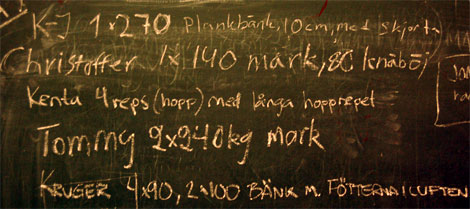 K-J 1x270 Plankbänk, 10cm, med skjorta
Christoffer 1x140 mark, 80 knäböj
Kenta 4 reps (hopp) med långa hopprepet
Tommy 2x240kg mark
KRUGER 4x90, 2x100 BÄNK M. FÖTTERNA I LUFTEN